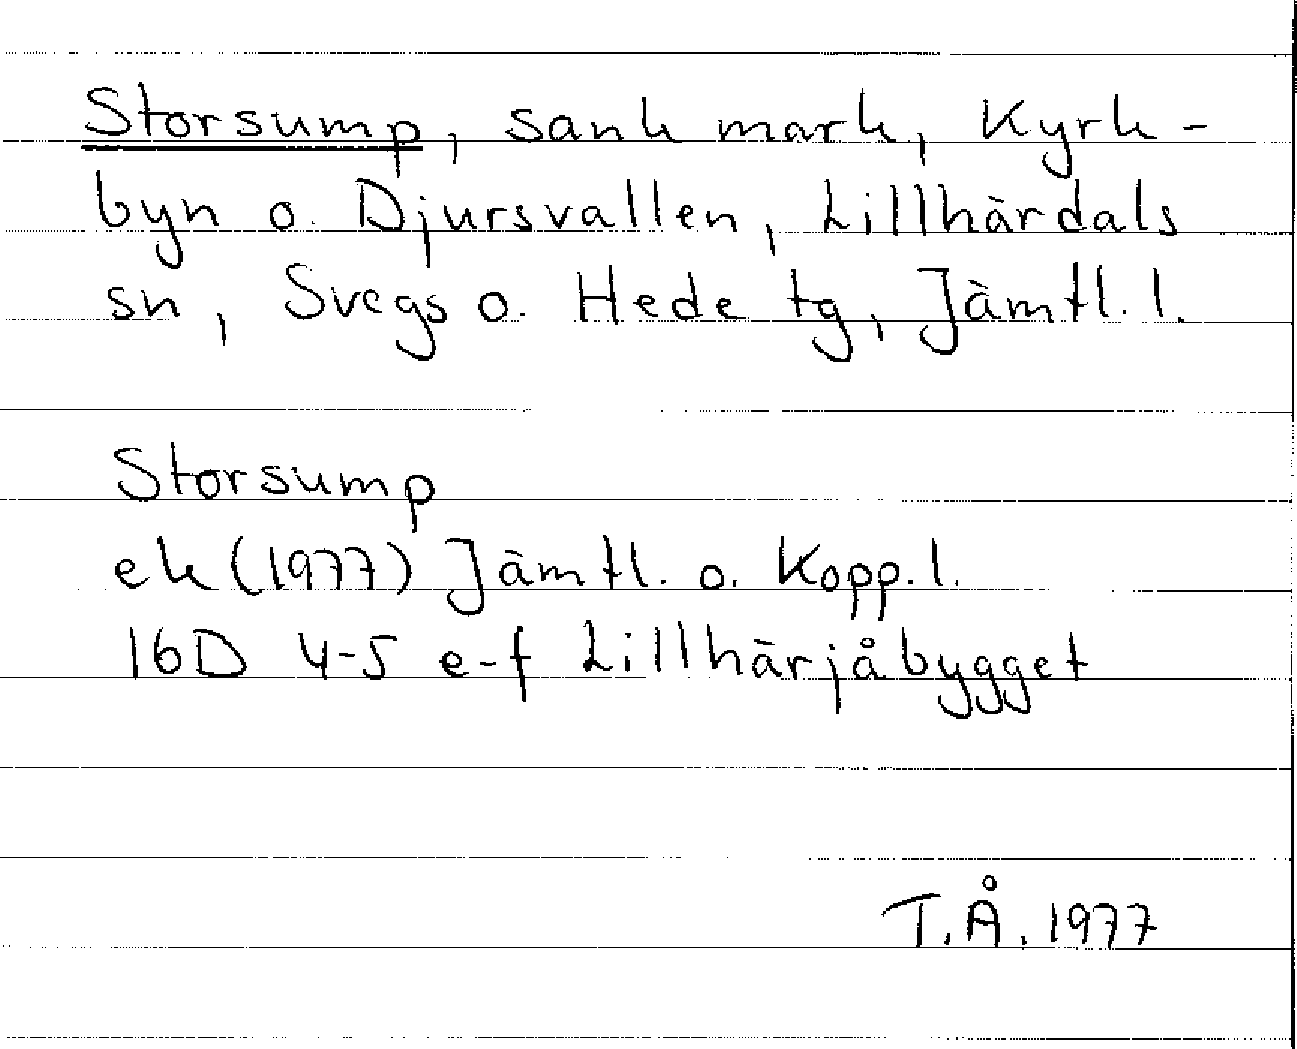 Storsump, sank mark, Kyrk-
byn o. Djursvallen, Lillhärdals
sn, Svegs o. Hede tg, Jämtl. l.
Storsump
ek (1977) Jämtl. o. Kopp. l.
16D 4-5 e-f Lillhärjåbygget
T.Å. 1977